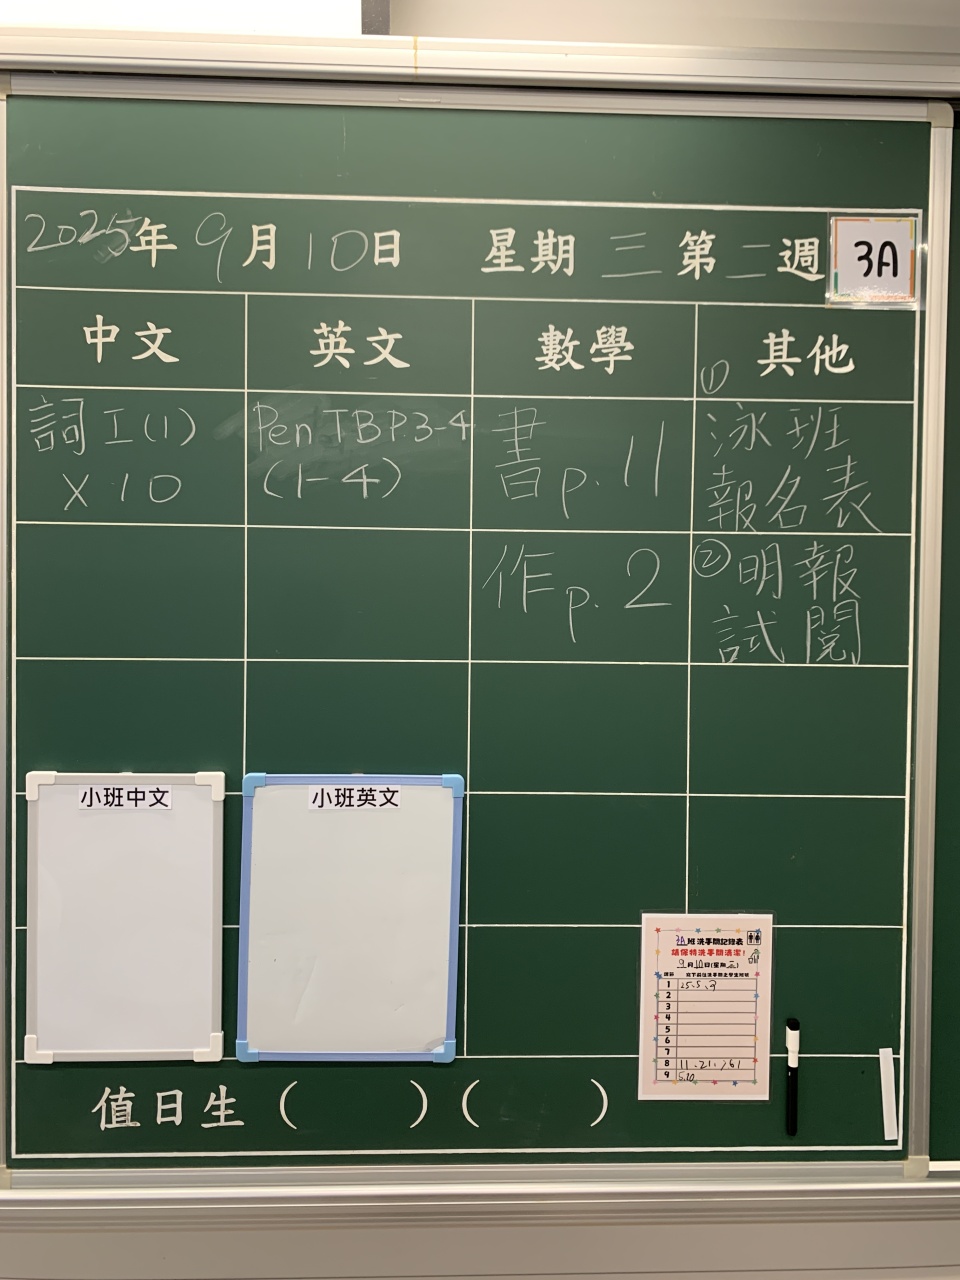 2025年9月10日 星期三第二週 3A
中文 英文 數學 其他
詞工(1)
X10
Pen TB P.3-4
(1-4)
書p.11
①泳班
報名表
作p.2
②明報
試閱
小班中文
小班英文
3A班洗手間記錄表
請保持洗手間清潔!
9月10日(星期三)
1 25.5.3
2
3
4
5
6
7
8
9 5.20
值日生( )( )